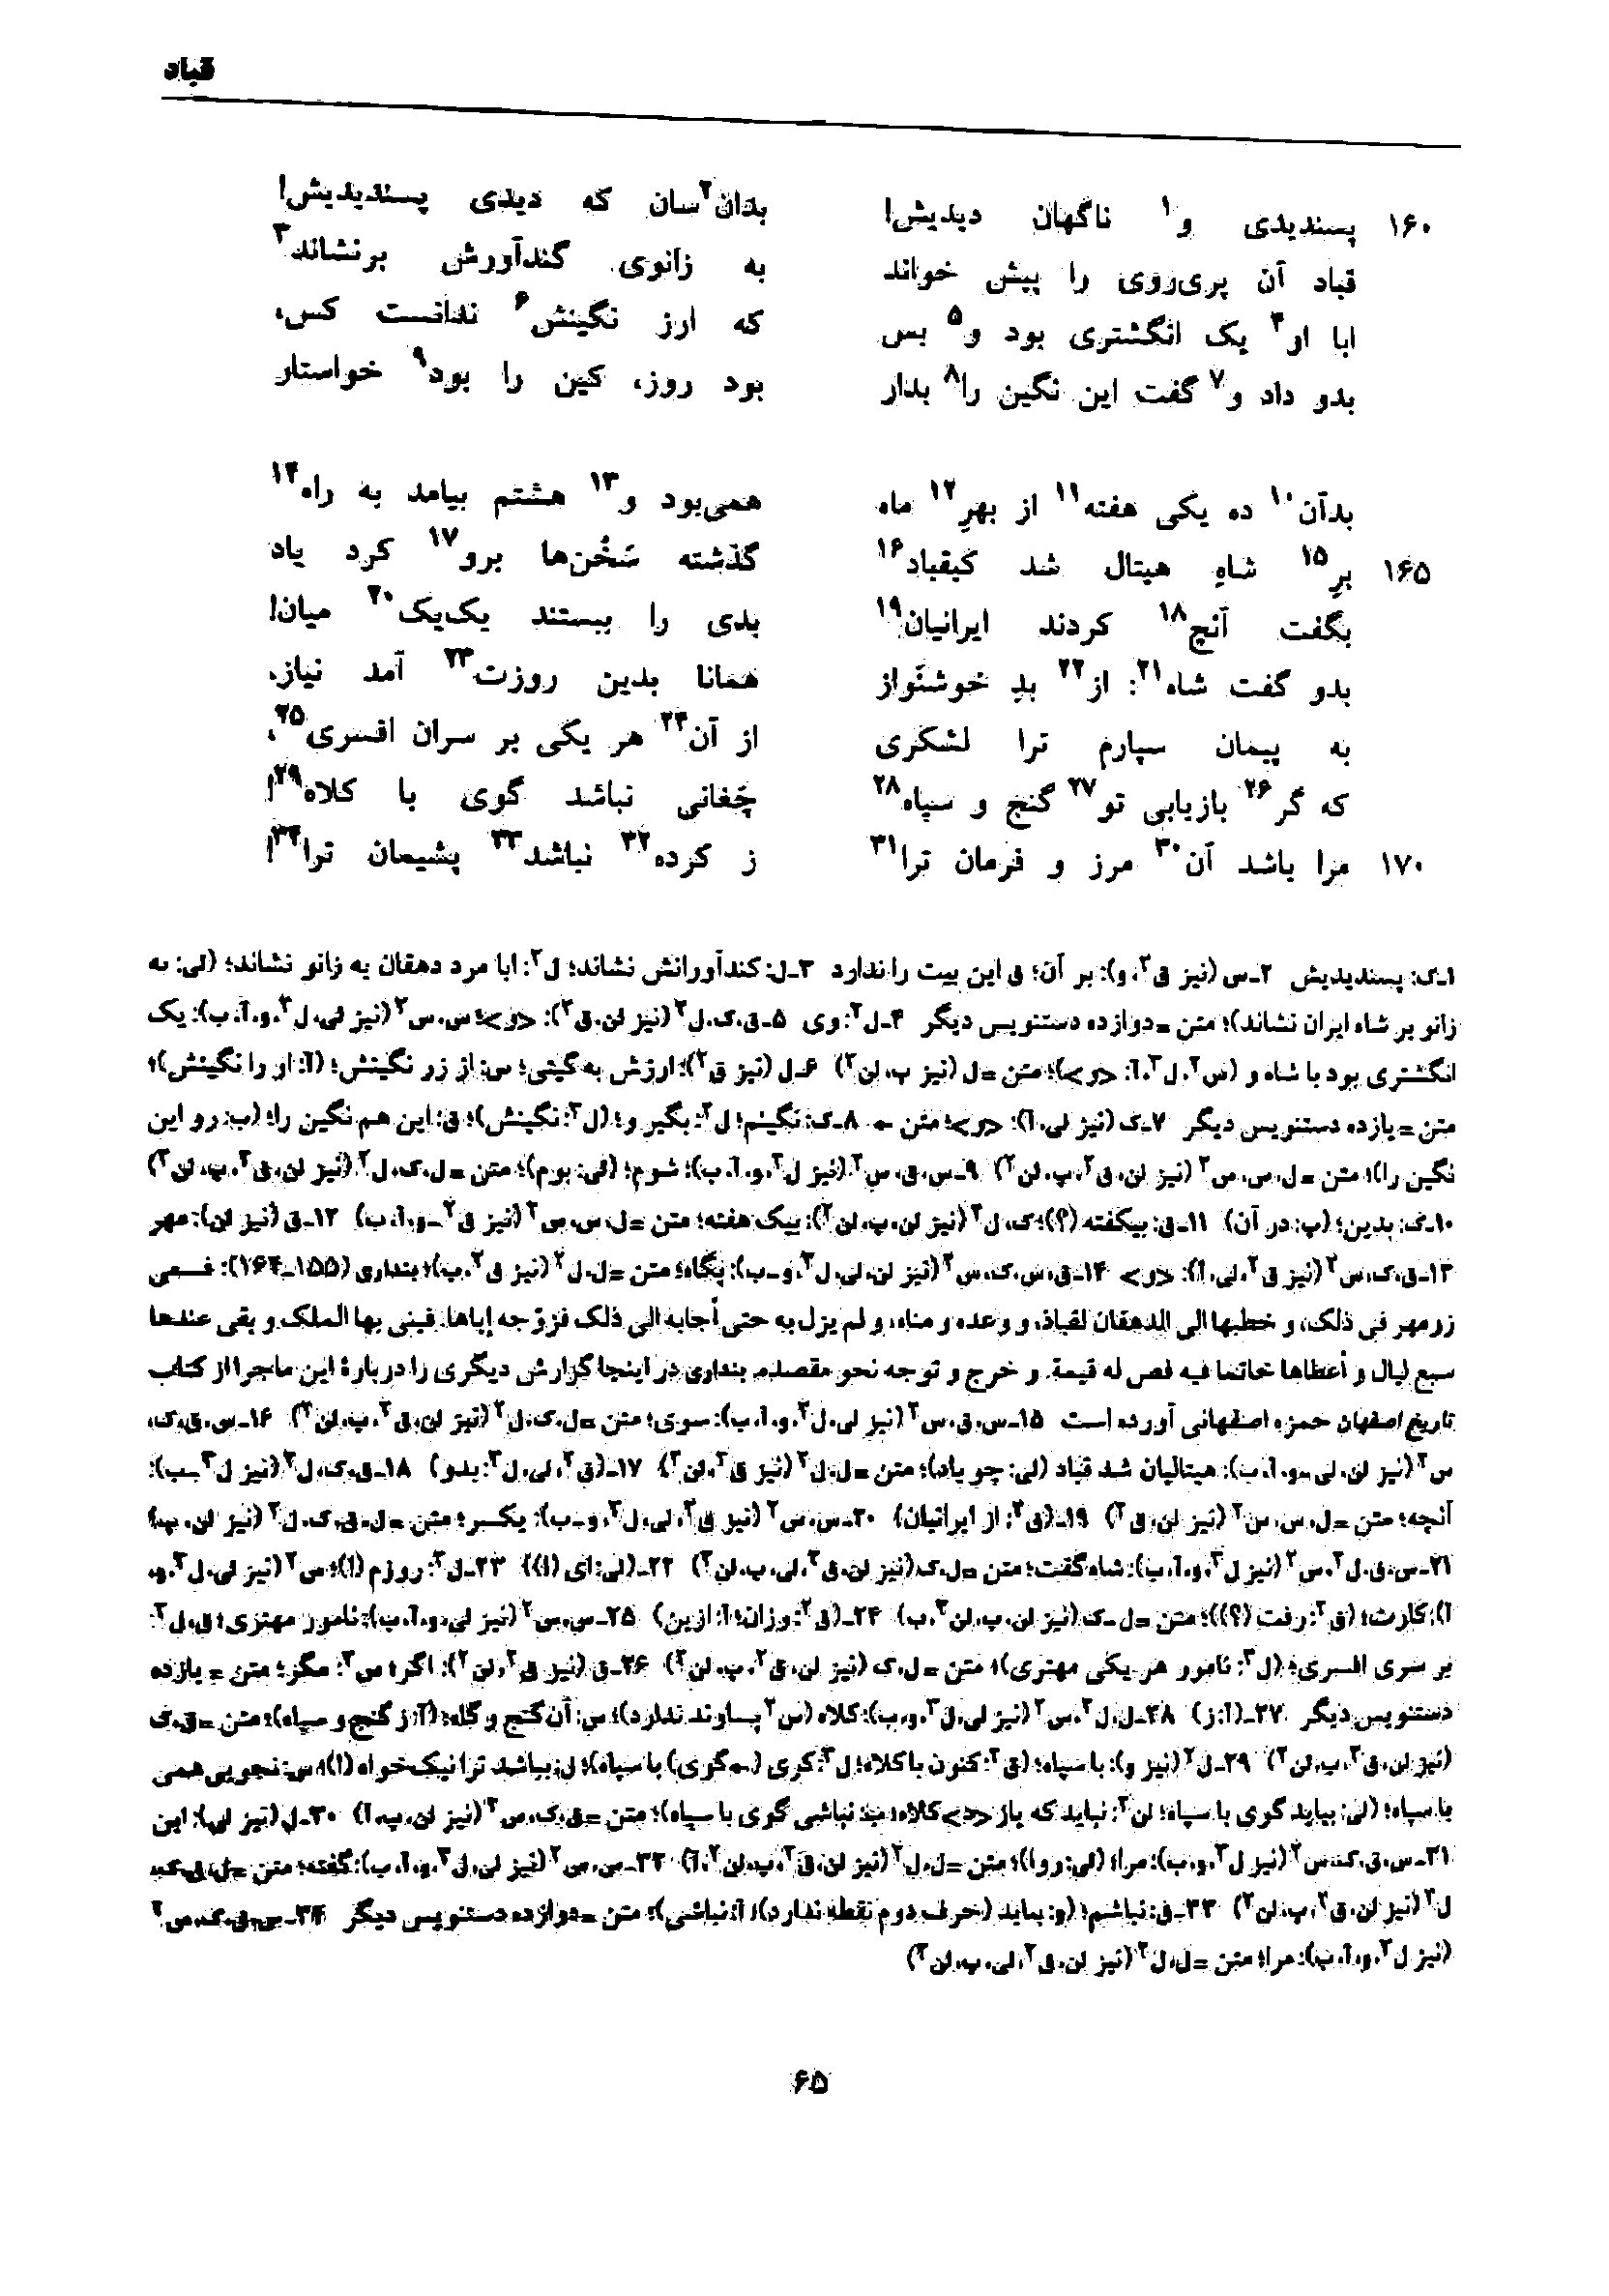 قباد
۱۶۰ پسندیدی و۱ ناگهان دیدیش! بدان۲ سان که دیدی پسندیدیش!
قباد آن پری‌روی را پیش خواند به زانوی گندآورش برنشاند۳
ابا او۴ یک انگشتری بود و۵ بس که ارز نگینش۶ ندانست کس،
بدو داد و۷ گفت این نگین را۸ بدار بود روز، کین را بود۹ خواستار
بدآن۱۰ ده یکی هفته۱۱ از بهرِ۱۲ ماه همی‌بود و۱۳ هشتم بیامد به راه۱۴
۱۶۵ برِ۱۵ شاهِ هیتال شد کیقباد۱۶ گذشته سَخُن‌ها برو۱۷ کرد یاد
بگفت آنچ۱۸ کردند ایرانیان۱۹ بدی را ببستند یک‌یک۲۰ میان!
بدو گفت شاه۲۱: از۲۲ بدِ خوشنَواز همانا بدین روزت۲۳ آمد نیاز،
به پیمان سپارم ترا لشکری از آن۲۴ هر یکی بر سران افسری۲۵،
که گر۲۶ بازیابی تو۲۷ گنج و سپاه۲۸ چَغانی نباشد گوی با کلاه۲۹!
۱۷۰ مرا باشد آن۳۰ مرز و فرمان ترا۳۱ ز کرده۳۲ نباشد۳۳ پشیمان ترا۳۴!
۱ـ ک: پسندیدیش ۲ـ س (نیز ق۲، و): بر آن؛ ق این بیت را ندارد ۳ـ ل: کندآورانش نشاند؛ ل۲: ابا مرد دهقان به زانو نشاند؛ (لی: به
زانو بر شاه ایران نشاند)؛ متن = دوازده دستنویس دیگر ۴ـ ل۲: وی ۵ـ ق، ک، ل۲ (نیز لن، ق۲): <و>؛ س، س۲ (نیز لی، ل۳، و، آ، ب): یک
انگشتری بود با شاه و (س۲، ل۳، آ: <و>)؛ متن = ل (نیز پ، لن۲) ۶ـ ل (نیز ق۲): ارزش به گیتی؛ س: از زر نگینش؛ (آ: او را نگینش)؛
متن = یازده دستنویس دیگر ۷ـ ک (نیز لی، آ): <و>؛ متن ← ۸ـ ک: نگینم؛ ل۲: بگیر و؛ (ل۳: نگینش)؛ ق: این هم نگین را؛ (ب: رو این
نگین را)؛ متن = ل، س، س۲ (نیز لن، ق۲، پ، لن۲) ۹ـ س، ق، س۲ (نیز ل۳، و، آ، ب): شوم؛ (لی: بوم)؛ متن = ل، ک، ل۲ (نیز لن، ق۲، پ، لن۲)
۱۰ـ ک: بدین؛ (پ: در آن) ۱۱ـ ق: بیکفته (؟)؛ ک، ل۲ (نیز لن، پ، لن۲): بیک هفته؛ متن = ل، س، س۲ (نیز ق۲ـ و، آ، ب) ۱۲ـ ق (نیز لن): مهر
۱۳ـ ق، ک، س۲ (نیز ق۲، لی، آ): <و> ۱۴ـ ق، س، ک، س۲ (نیز لن، لی، ل۳، و ـ ب): پگاه؛ متن = ل، ل۲ (نیز ق۲، ب)؛ بنداری (۱۵۵ـ۱۶۴): فسعی
زرمهر فی ذلک، و خطبها الی الدهقان لقباذ، و وعده و مناه، و لم یزل به حتی أجابه الی ذلک فزوّجه إیاها. فبنی بها الملک و بقی عندها
سبع لیال و أعطاها خاتما فیه فص له قیمة. و خرج و توجه نحو مقصده. بنداری در اینجا گزارش دیگری را دربارهٔ این ماجرا از کتاب
تاریخ اصفهان حمزه اصفهانی آورده است ۱۵ـ س، ق، س۲ (نیز لی، ل۳، و، آ، ب): سوی؛ متن = ل، ک، ل۲ (نیز لن، ق۲، پ، لن۲) ۱۶ـ س، ق، ک،
س۲ (نیز لن، لی ـ و، آ، ب): هیتالیان شد قباد (لی: چو یاد)؛ متن = ل، ل۲ (نیز ق۲، لن۲) ۱۷ـ (ق۲، لی، ل۳: بدو) ۱۸ـ ق، ک، ل۲ (نیز ل۳ـ ب):
آنچه؛ متن = ل، س، س۲ (نیز لن، ق۲) ۱۹ـ (ق۲: از ایرانیان) ۲۰ـ س، س۲ (نیز ق۲، لی، ل۳، و ـ ب): یکسر؛ متن = ل، ق، ک، ل۲ (نیز لن، پ)
۲۱ـ س، ق، ل۲، س۲ (نیز ل۳، و، آ، ب): شاه گفت؛ متن = ل، ک (نیز لن، ق۲، لی، پ، لن۲) ۲۲ـ (لی: ای (!)) ۲۳ـ ل۲: روزم (!)؛ س۲ (نیز لی، ل۳، و،
آ): کارت؛ (ق۲: رفت (؟))؛ متن = ل ـ ک (نیز لن، پ، لن۲، ب) ۲۴ـ (ق۲: وزان؛ آ: ازین) ۲۵ـ س، س۲ (نیز لی، و، آ، ب): نامور مهتری؛ ق، ل۲:
بر سری افسری؛ (ل۳: نامور هر یکی مهتری)؛ متن = ل، ک (نیز لن، ق۲، پ، لن۲) ۲۶ـ ق (نیز ق۲، لن۲): اگر؛ س۲: مگر؛ متن = یازده
دستنویس دیگر ۲۷ـ (آ: ز) ۲۸ـ ل، ل۲، س۲ (نیز لی، ل۳، و، ب): کلاه (س۲ پساوند ندارد)؛ س: آن گنج و گله؛ (آ: ز گنج و سپاه)؛ متن = ق، ک
(نیز لن، ق۲، پ، لن۲) ۲۹ـ ل۲ (نیز و): با سپاه؛ (ق۲: کنون با کلاه؛ ل۳: کری (← گوی) با سپاه)؛ ل: نباشد ترا نیک‌خواه (!)؛ س: نجویی همی
با سپاه؛ (لی: بیاید گوی با سپاه؛ لن۲: نباید که باز <د> کلاه؛ ب: نباشی گوی با سپاه)؛ متن = ق، ک، س۲ (نیز لن، پ، آ) ۳۰ـ ل (نیز لی): این
۳۱ـ س، ق، ک، س۲ (نیز ل۳، و، ب): مرا؛ (لی: روا)؛ متن = ل، ل۲ (نیز لن، ق۲، پ، لن۲، آ) ۳۲ـ س، س۲ (نیز لی، ل۳، و، آ، ب): گفته؛ متن = ل، ق، ک،
ل۲ (نیز لن، ق۲، پ، لن۲) ۳۳ـ ق: نباشم؛ (و: بباید (حرف دوم نقطه ندارد)؛ آ: نباشی)؛ متن = دوازده دستنویس دیگر ۳۴ـ س، ق، ک، س۲
(نیز ل۳، و، آ، ب): مرا؛ متن = ل، ل۲ (نیز لن، ق۲، لی، پ، لن۲)
۶۵